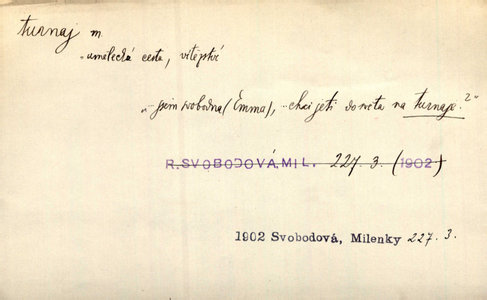 turnaj m
„umělecká cesta, vítězství
„...jsem svobodna (Emma), ...chci jeti do světa na turnaje.“
R.SVOBODOVÁ.MIL. 227. 3. (1902)
1902 Svobodová, Milenky 227. 3.